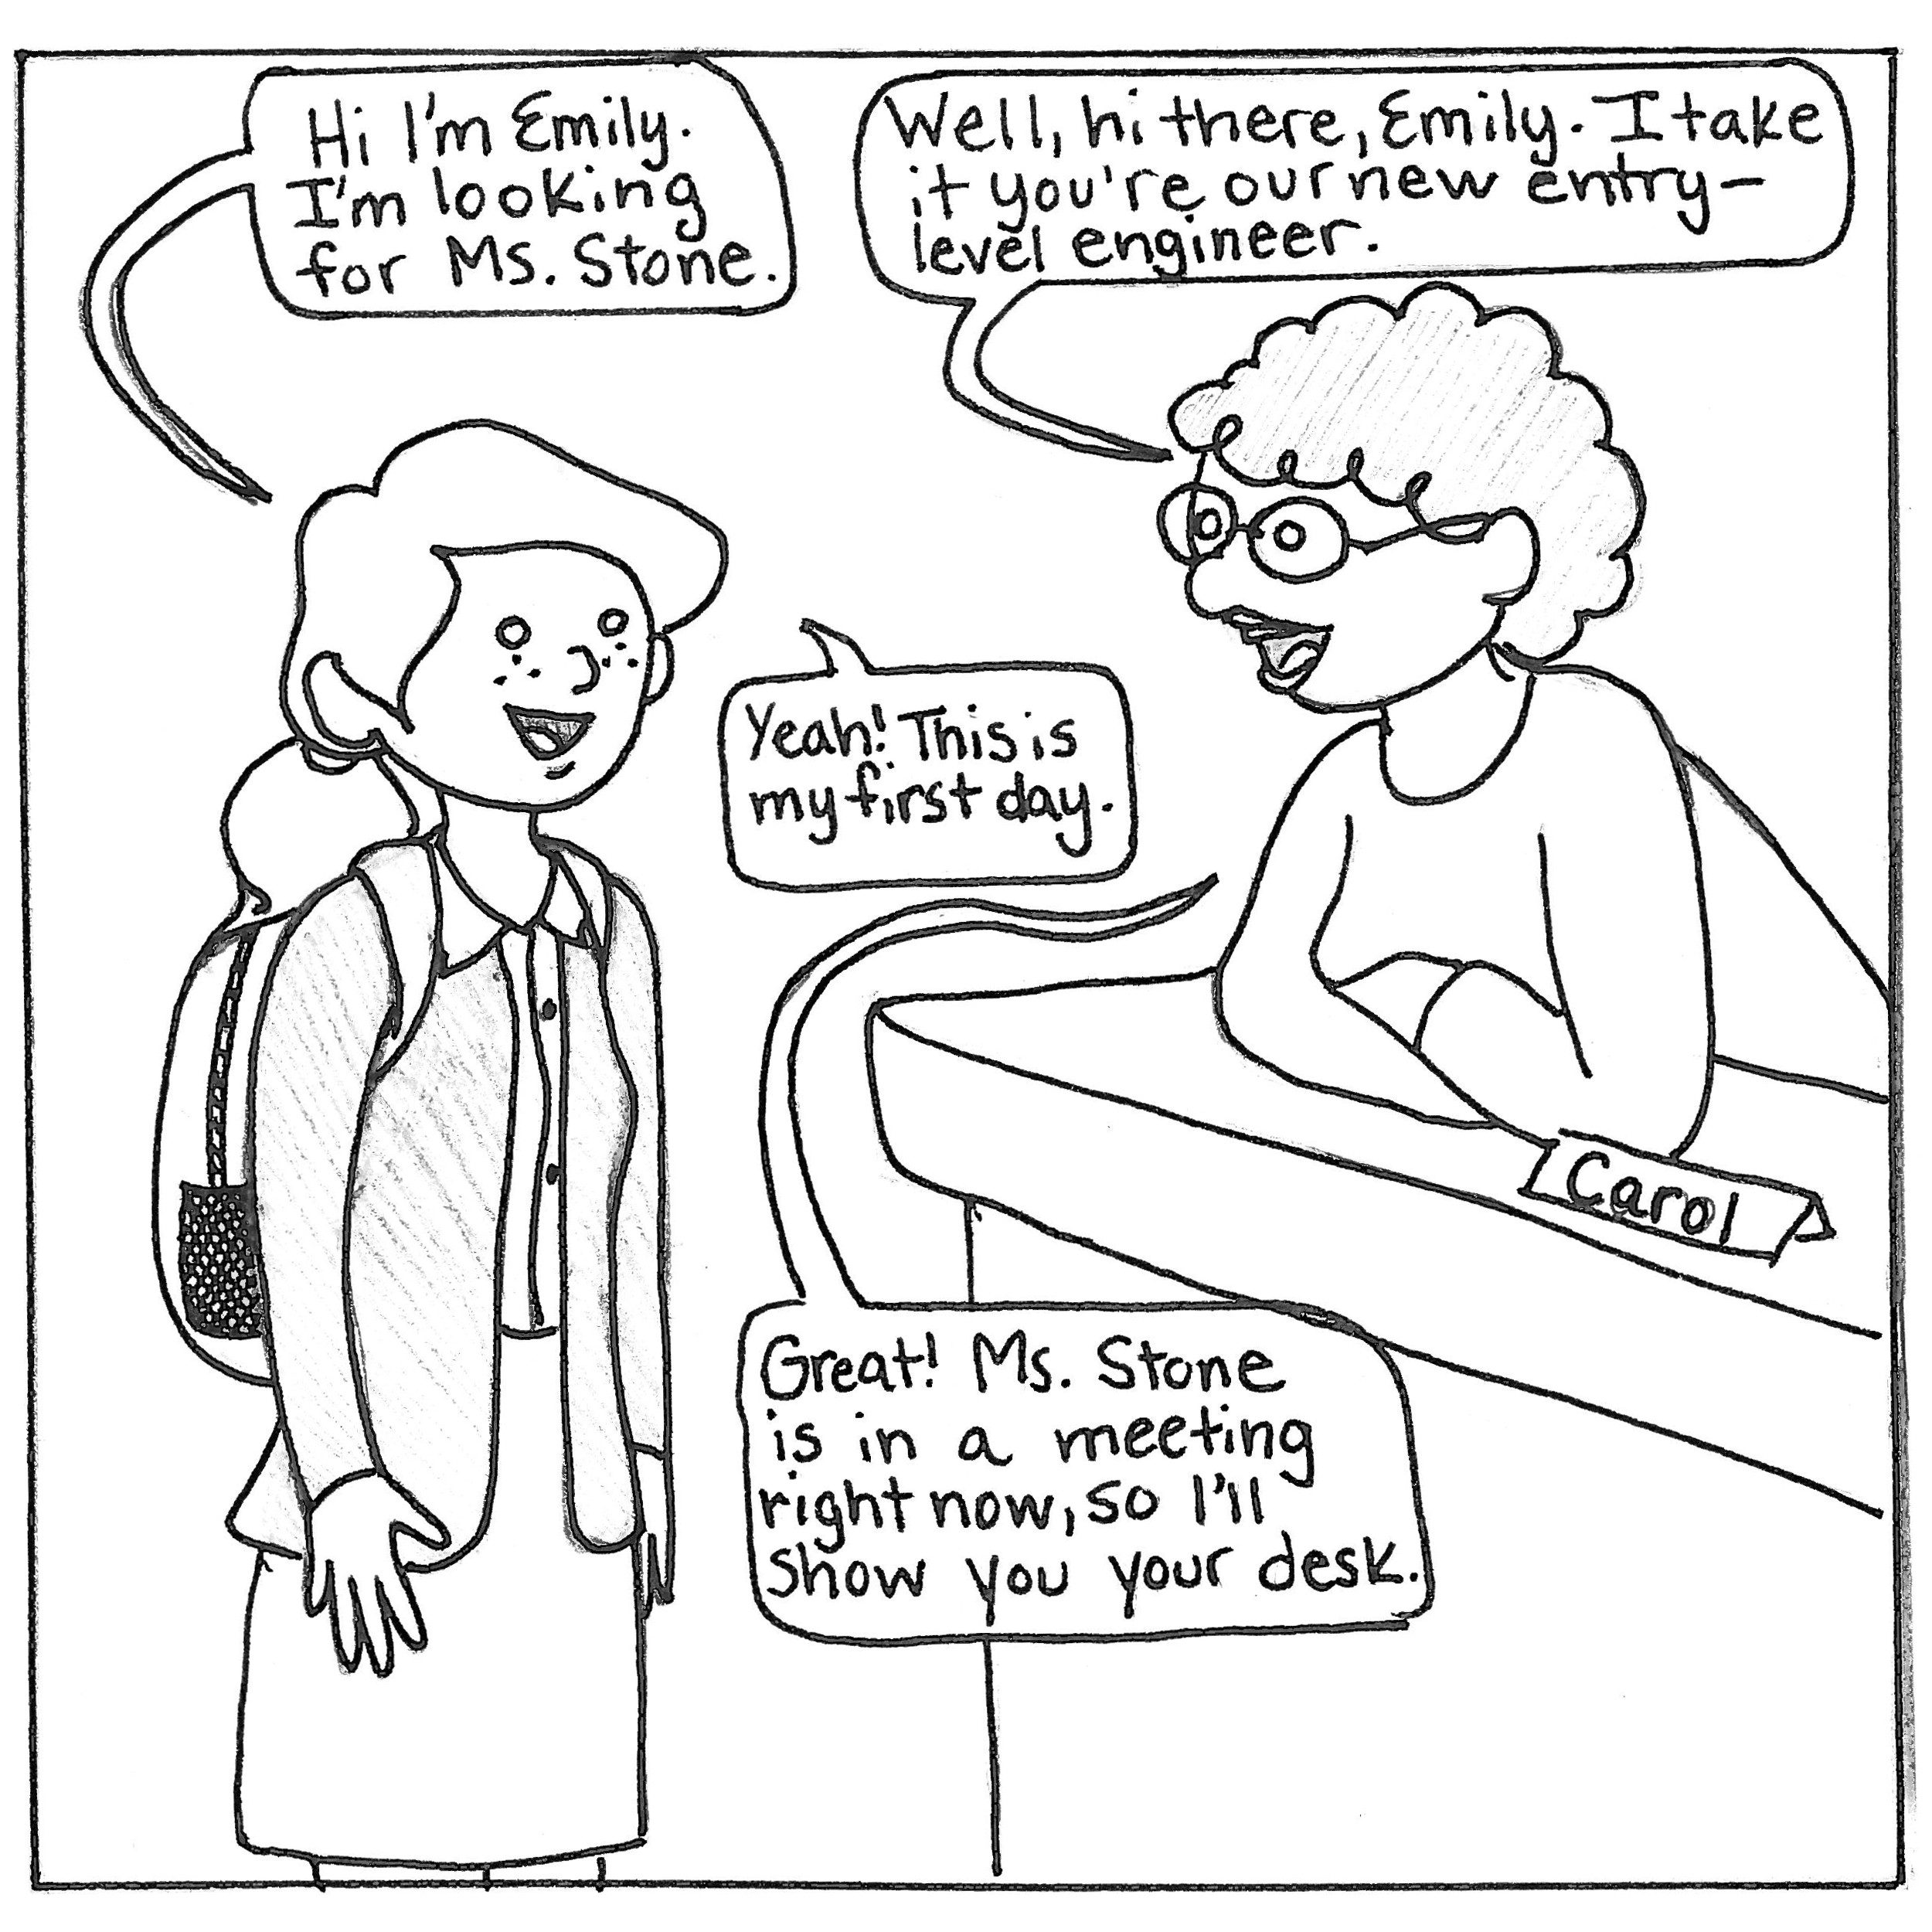 Hi I'm Emily.
I'm looking
for Ms. Stone.
Well, hi there, Emily. I take
it you're our new entry-
level engineer.
Yeah! This is
my first day.
Great! Ms. Stone
is in a meeting
right now, so I'll
show you your desk.
Carol